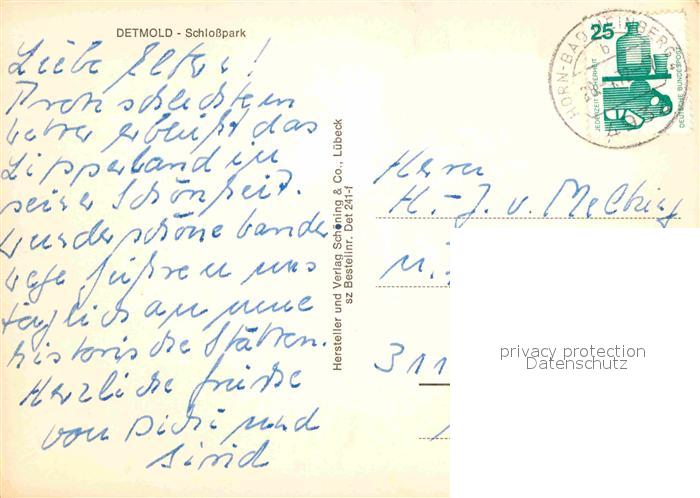 DETMOLD - Schloßpark
Liebe Eltern!
Trotz schlechtem
Wetter erblüht das
Lipperland in
seiner Schönheit.
Wunderschöne Wander
wege führen uns
täglich an neue
historische Stätten.
Herzliche Grüße
von und
Hersteller und Verlag Schöning & Co., Lübeck
sz Bestellnr. Det 241-f
HORN-BAD MEINBERG
b
25
JEDERZEIT SICHERHEIT
DEUTSCHE BUNDESPOST
Herrn
H.-J. v.
311
privacy protection
Datenschutz